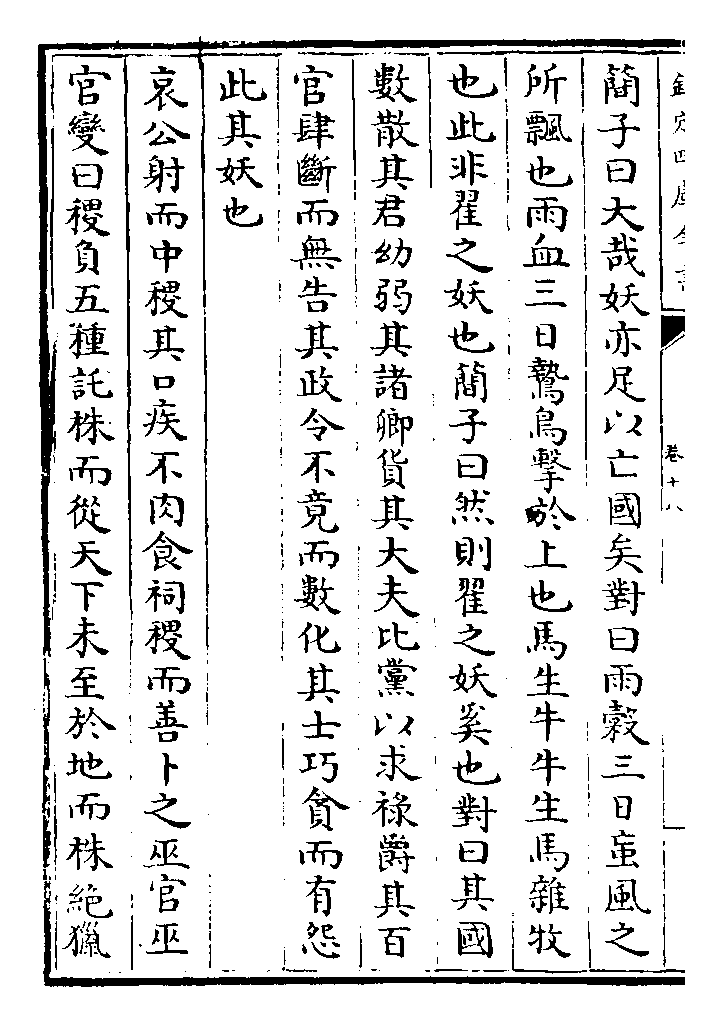 欽定四庫全書
卷十八
簡子曰大哉妖亦足以亡國矣對曰雨穀三日䖟風之
所飄也雨血三日鷙鳥擊於上也馬生牛牛生馬雜牧
也此非翟之妖也簡子曰然則翟之妖奚也對曰其國
數散其君幼弱其諸卿貨其大夫比黨以求祿爵其百
官肆斷而無告其政令不竟而數化其士巧貪而有怨
此其妖也
哀公射而中稷其口疾不肉食祠稷而善卜之巫官巫
官變曰稷負五種託株而從天下未至於地而株絶獵